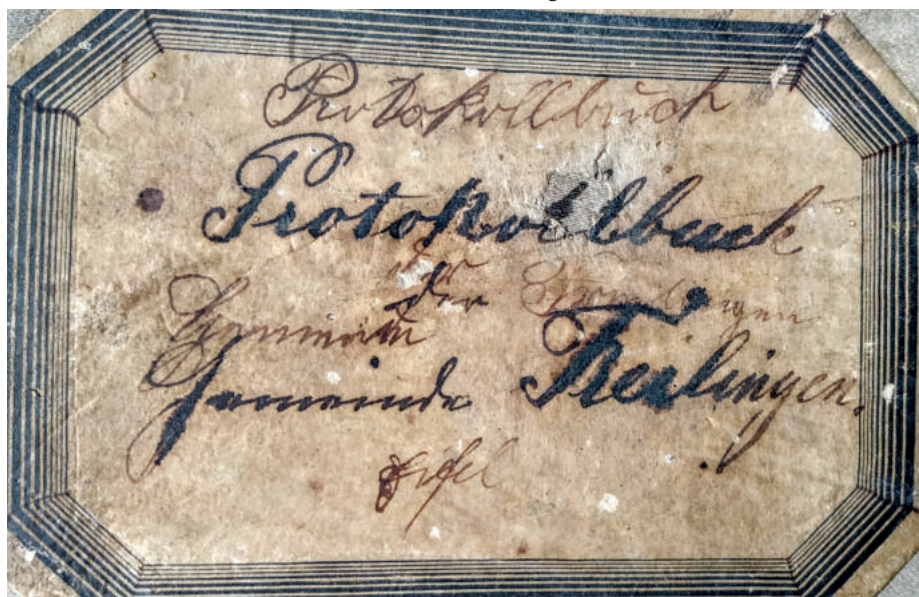 Protokollbuch
Protokollbuch
der
der
Gemeinde
Gemeinde Freilingen.
Eifel